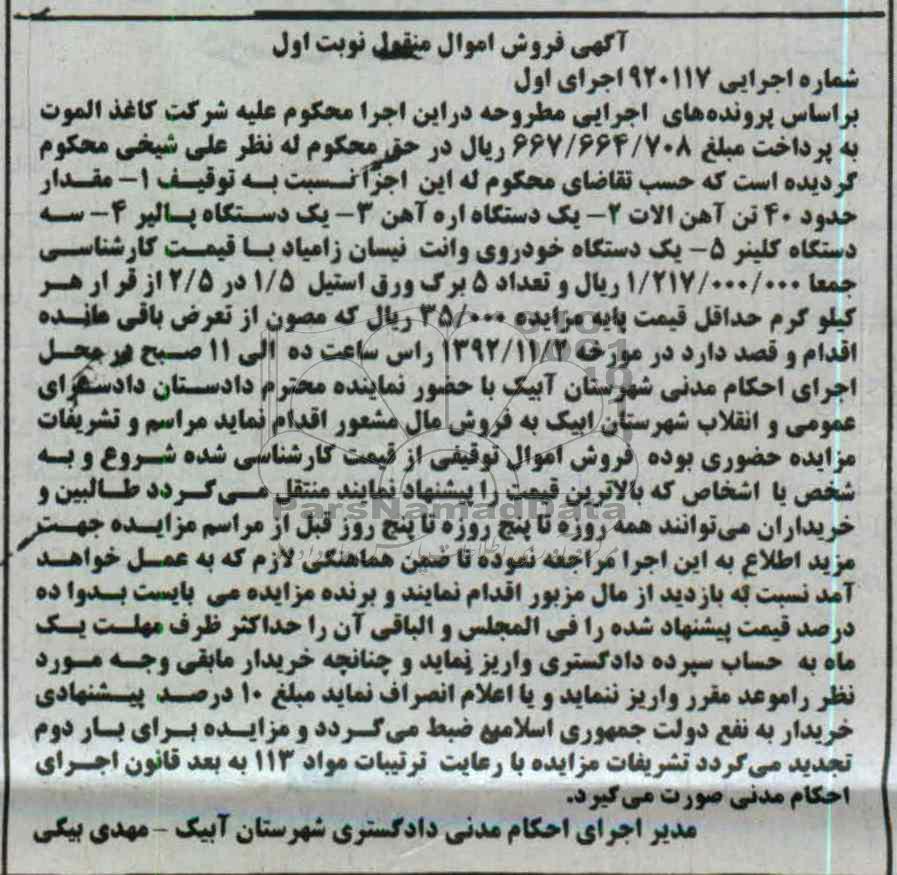 آگهی فروش اموال منقول نوبت اول
شماره اجرایی ۹۲۰۱۱۷ اجرای اول
براساس پرونده‌های اجرایی مطروحه دراین اجرا محکوم علیه شرکت کاغذ الموت
به پرداخت مبلغ ۶۶۷/۶۶۴/۷۰۸ ریال در حق محکوم له نظر علی شیخی محکوم
گردیده است که حسب تقاضای محکوم له این اجرا نسبت به توقیف ۱- مقدار
حدود ۴۰ تن آهن الات ۲- یک دستگاه اره آهن ۳- یک دستگاه پالپر ۴- سه
دستگاه کلینر ۵- یک دستگاه خودروی وانت نیسان زامیاد با قیمت کارشناسی
جمعا ۱/۲۱۷/۰۰۰/۰۰۰ ریال و تعداد ۵ برگ ورق استیل ۱/۵ در ۲/۵ از قرار هر
کیلو گرم حداقل قیمت پایه مزایده ۳۵/۰۰۰ ریال که مصون از تعرض باقی مانده
اقدام و قصد دارد در مورخه ۱۳۹۲/۱۱/۲ راس ساعت ده الی ۱۱ صبح در محل
اجرای احکام مدنی شهرستان آبیک با حضور نماینده محترم دادستان دادسرای
عمومی و انقلاب شهرستان ابیک به فروش مال مشعور اقدام نماید مراسم و تشریفات
مزایده حضوری بوده فروش اموال توقیفی از قیمت کارشناسی شده شروع و به
شخص یا اشخاص که بالاترین قیمت را پیشنهاد نمایند منتقل می‌گردد طالبین و
خریداران می‌توانند همه روزه تا پنج روزه تا پنج روز قبل از مراسم مزایده جهت
مزید اطلاع به این اجرا مراجعه نموده تا ضمن هماهنگی لازم که به عمل خواهد
آمد نسبت به بازدید از مال مزبور اقدام نمایند و برنده مزایده می بایست بدوا ده
درصد قیمت پیشنهاد شده را فی المجلس و الباقی آن را حداکثر ظرف مهلت یک
ماه به حساب سپرده دادگستری واریز نماید و چنانچه خریدار مابقی وجه مورد
نظر راموعد مقرر واریز ننماید و یا اعلام انصراف نماید مبلغ ۱۰ درصد پیشنهادی
خریدار به نفع دولت جمهوری اسلامی ضبط می‌گردد و مزایده برای بار دوم
تجدید می‌گردد تشریفات مزایده با رعایت ترتیبات مواد ۱۱۳ به بعد قانون اجرای
احکام مدنی صورت می‌گیرد.
مدیر اجرای احکام مدنی دادگستری شهرستان آبیک - مهدی بیکی
ParsNamadData